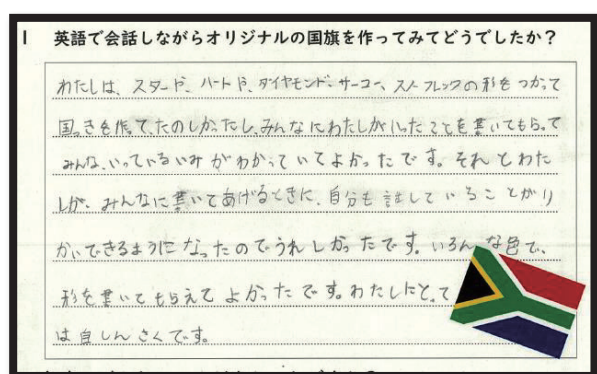 1 英語で会話しながらオリジナルの国旗を作ってみてどうでしたか?
わたしは、スタードや、ハートや、ダイヤモンド、サーコー、スノーフレックの形をつかって
国っきを作って、たのしかったし、みんなにわたしがいったことを書いてもらって
みんな、いっているいみがわかっていてよかったです。それとわた
しが、みんなに書いてあげるときに、自分も話していることがり
かいできるようになったのでうれしかったです。いろんな色で、
形を書いてもらえてよかったです。わたしにとって
は自しんさくです。